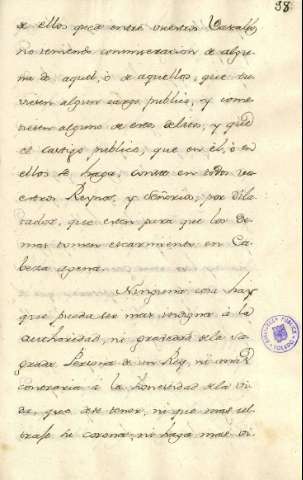 38
de ellos quede entre vuestros Vasallos
no teniendo conmiseracion de algu
no de aquel, ó de aquellos, que tu
vieren algun cargo publico, y come
tieren alguno de estos delitos, y que
el castigo publico, que en él, ó en
ellos se haga, conste en todos vu
estros Reynos, y Señorios, por dila
tados, que esten para que los de
mas tomen escarmiento en Ca
beza agena.
Ninguna cosa hay
que pueda ser mas indigna á la
authoridad, ni gravedad de la Sa
grada Persona de un Rey, ni mas
contraria á la honestidad de la vi
da, que debe tener, ni que mas ul
traje su corona, ni haga mas vi
BIBLIOTECA PUBLICA
TOLEDO